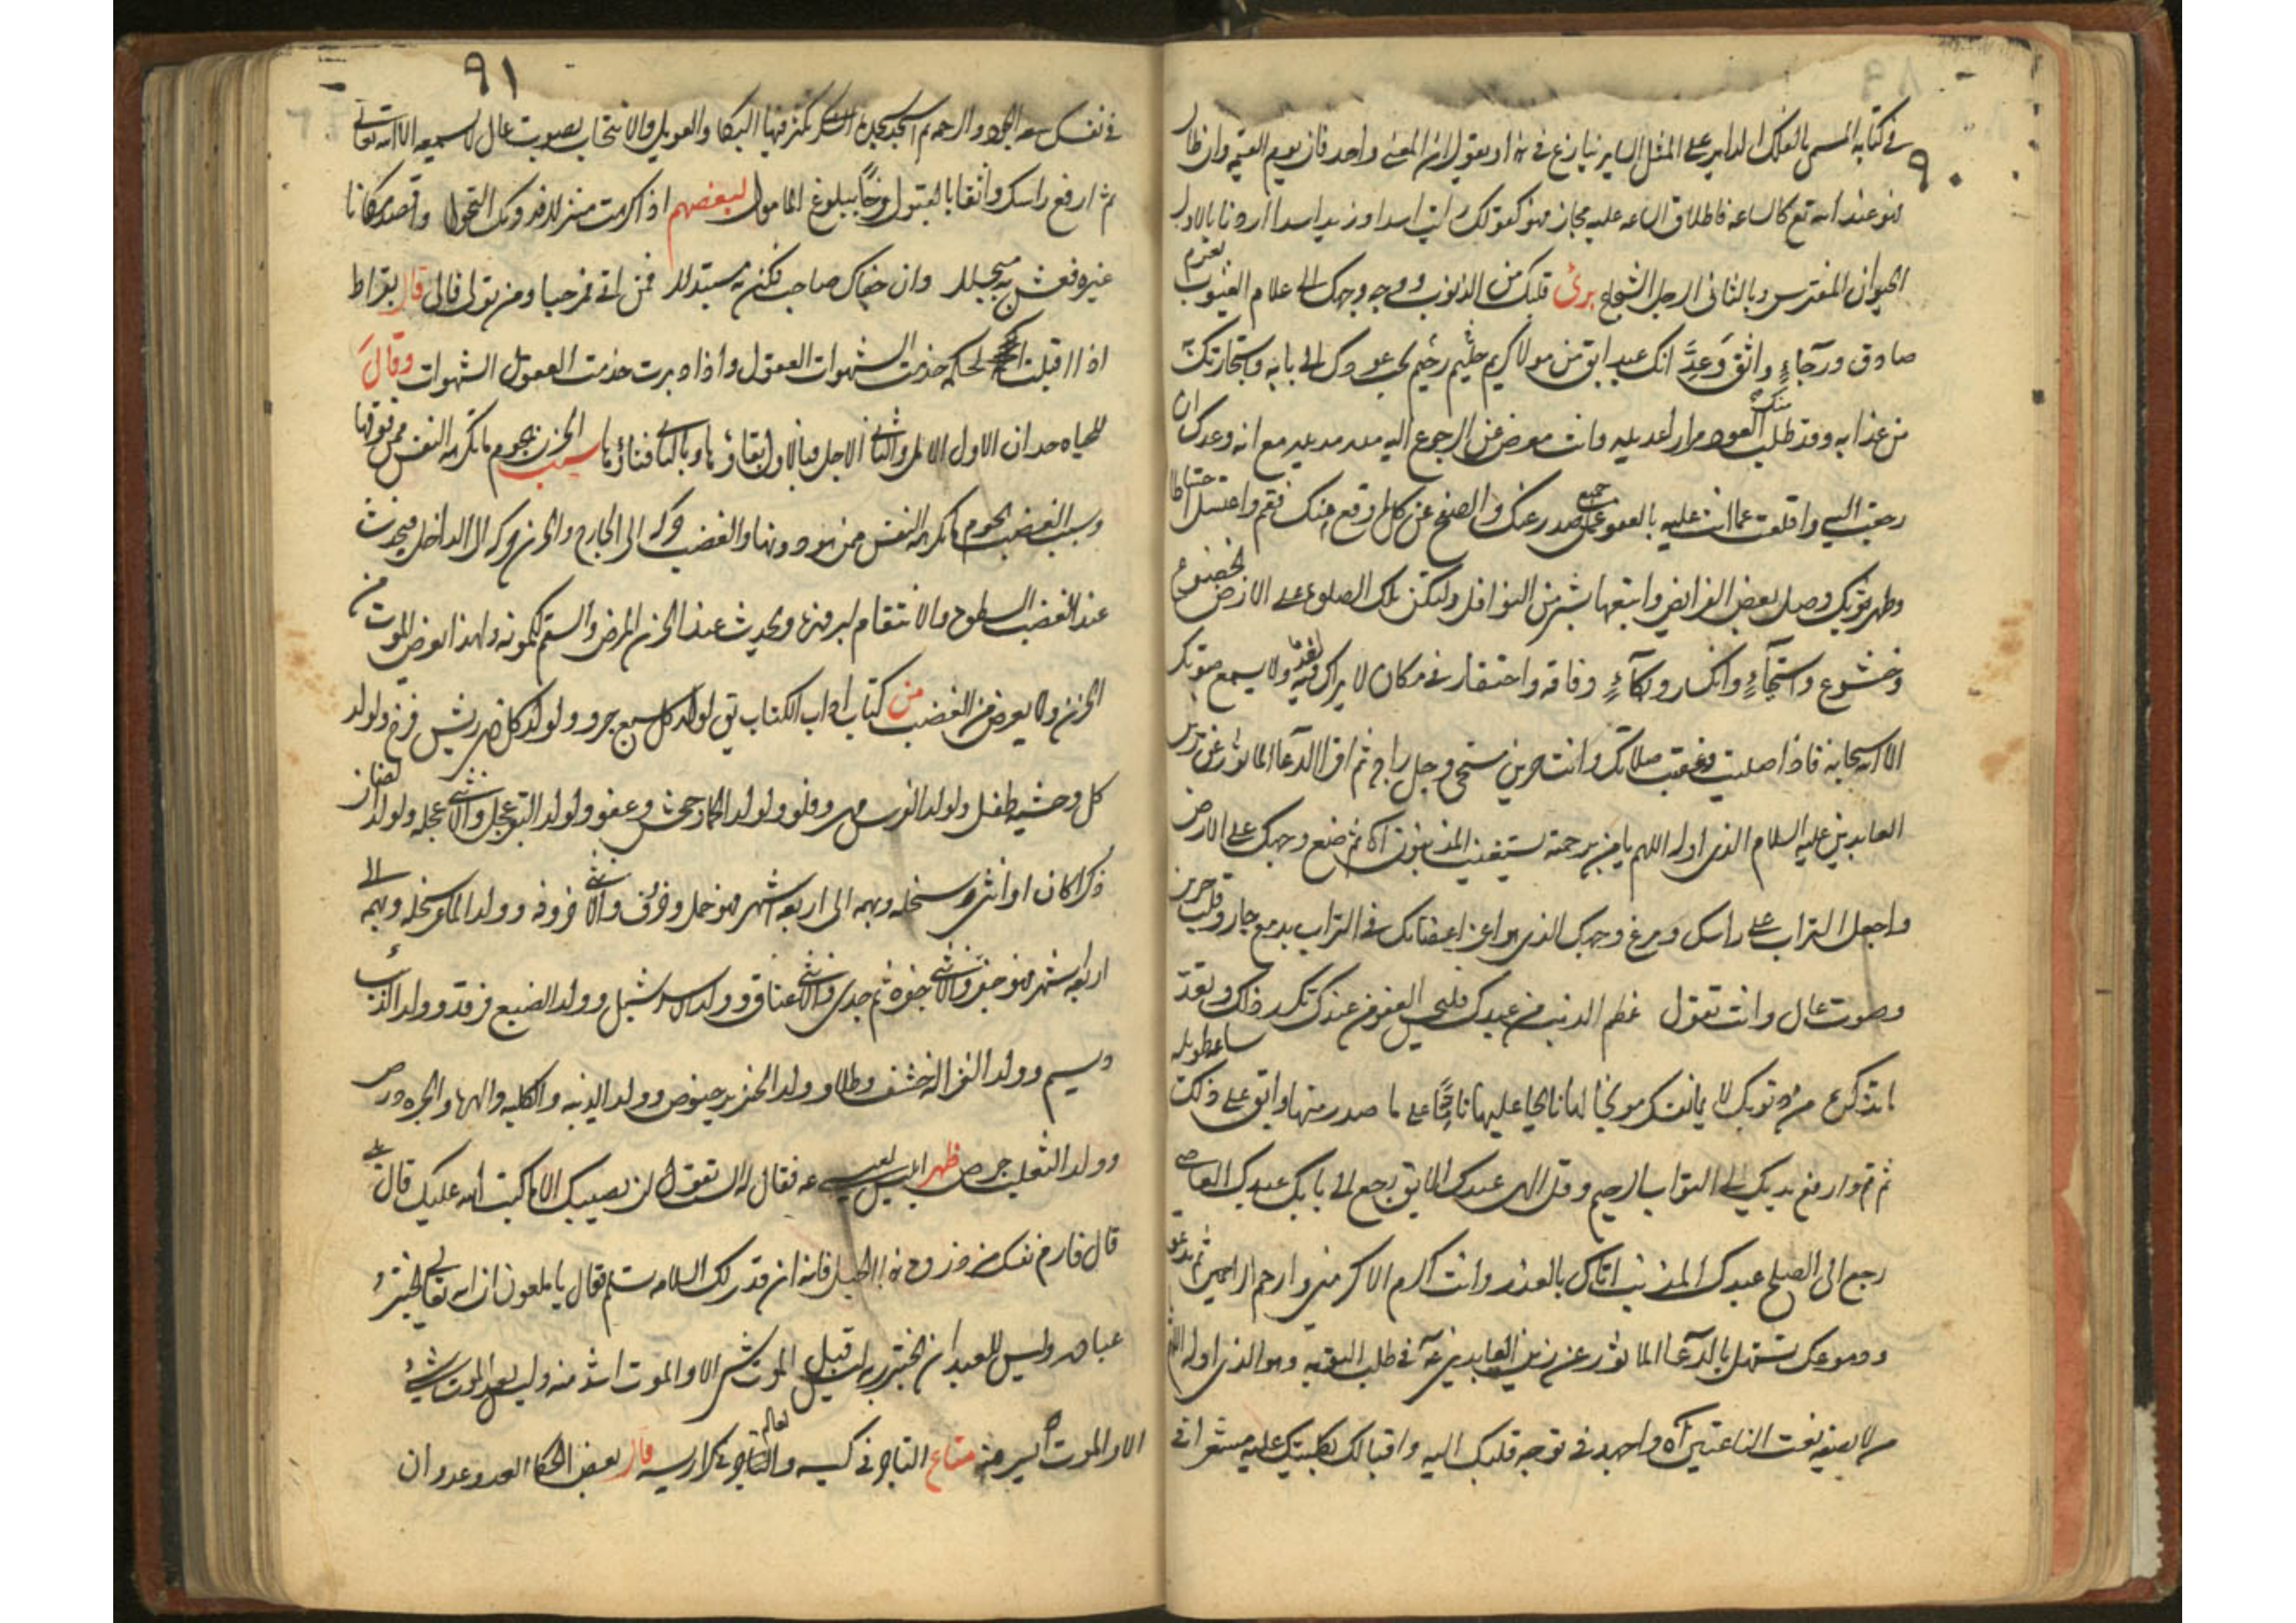 ٩٠
في كتابه المسمى بالفلك الداير على المثل الساير نيازع في هذا ويقول ان المعنى واحد فان يوم القيمة وان طال
فهو عند الله تع كالساعه فاطلاق الساعه عليه مجاز فهو كقولك رايت اسدا وزيد اسدا اردنا بالاول
الحيوان المفترس وبالثاني الرجل الشجاع برئ قلبك من الذنوب ووجه وجهك الى علام الغيوب بعزم
صادق ورجاء واثق وعد انك عبد ابق من مولا كريم حليم رحيم يحب عودك الى بابه واستجارتك به
من عذابه وقد طلب منك العود مرارا عديده وانت معرض عن الرجوع اليه مده مديده مع انه وعدك ان
رجعت اليه واقلعت عما انت عليه بالعفو عن جميع ما صدر عنك والصفح عن كل ما وقع منك فقم واغتسل احتياطا
وطهر ثوبك وصل بعض الفرائض واتبعها بشيء من النوافل ولتكن تلك الصلوة على الارض بخضوع
وخشوع واستحياء وانكسار وبكاء وفاقه وافتقار في مكان لا يراك فيه ولا يسمع صوتك
الا الله سبحانه فاذا صليت فعقب صلاتك وانت حزين مستحي وجل راج ثم اقرا الدعا الماثور عن زين
العابدين عليه السلام الذي اوله اللهم يا من برحمته يستغيث المذنبون اه ثم ضع وجهك على الارض
واجعل التراب على راسك ومرغ وجهك الذي هو اعز اعضائك في التراب بدمع جار وقلب حزين
وصوت عال وانت تقول عظم الذنب من عبدك فليحسن العفو من عندك تكرر ذلك وتعدد
ما تذكره من ذنوبك لائما نفسك موبخا لها نائحا عليها نادما على ما صدر منها وابق على ذلك ساعه طويله
ثم قم وارفع يديك الى التواب الرحيم وقل الهي عبدك الابق رجع الى بابك عبدك العاصي
رجع الى الصلح عبدك المذنب اتاك بالعذر وانت اكرم الاكرمين وارحم الراحمين ثم تدعو
ودموعك تنهل بالدعا الماثور عن زين العابدين ع في طلب التوبه وهو الذي اوله اللهم
يا من لا يصفه نعت الناعتين اه واجهد في توجه قلبك اليه واقبالك بكليتك عليه مشعرا في
٩١
في نفسك سعه الجود والرحمه ثم اسجد سجدة الشكر تكثر فيها البكا والعويل والانتحاب بصوت عال لا يسمعه الا الله تعالى
ثم ارفع راسك واثقا بالقبول فرحا ببلوغ المامول لبعضهم اذا كرهت منزلا فدونك التحولا واقصد مكانا
غيره فعش به مبجلا وان جفاك صاحب فكن به مستبدلا فمن اتى فمرحبا ومن تولى فالى قال بقراط
اذا اقبلت الحكمه خدمت الشهوات العقول واذا ادبرت خدمت العقول الشهوات وقال
للحياه حدان الاول الامل والثاني الاجل فبالاول بقاؤها وبالثاني فناؤها سبب الحزن هجوم ما تكرهه النفس ممن فوقها
وسبب الغضب هجوم ما تكرهه النفس ممن هو دونها والغضب حركه الى الخارج والحزن حركه الى الداخل فيحدث
عند الغضب السطوه والانتقام لبروزها ويحدث عند الحزن المرض والسقم لكمونه ولهذا يعرض الموت من
الحزن ولا يعرض من الغضب من كتاب اداب الكتاب يق لولد كل سبع جرو ولولد كل ذي ريش فرخ ولولد
كل وحشيه طفل ولولد الفرس مهر وفلو ولولد الحمار جحش وعفو ولولد البقره عجل والانثى عجله ولولد الضان
ذكرا كان او انثى سخله وبهمه الى اربعه اشهر فهو حمل وخروف والانثى خروفه وولد الماعز سخله وبهمه الى
اربعه اشهر فهو جفر والانثى جفره ثم جدي والانثى عناق وولد الاسد شبل وولد الضبع فرقد وولد الذئب
وسيم وولد الغزاله خشف وطلا وولد الخنزير خنوص وولد الذئبه والكلبه والهره والجره درص
وولد الثعلب جرص ظهر ابليس لعيسى ع فقال له الست تقول لن يصيبك الا ما كتب الله عليك قال بلى
قال فارم نفسك من ذروه هذا الجبل فانه ان قدر لك السلامه تسلم فقال يا ملعون ان الله تعالى يختبر
عباده وليس للعبد ان يختبر ربه قيل الموت شر الا والموت اشد منه وليس بعد الموت شيء
الا والموت ايسر منه متاع التاجر في كيسه والعالم في كراريسه قال بعض الحكما العدو عدوان